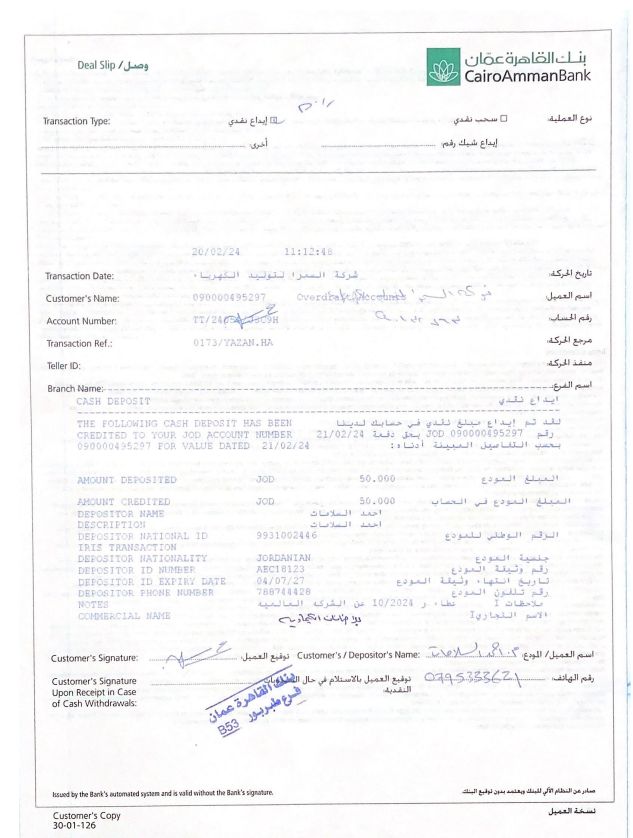 Deal Slip / وصل
بنك القاهرة عمّان
CairoAmmanBank
Transaction Type: إيداع نقدي سحب نقدي نوع العملية:
أخرى: إيداع شيك رقم:
20/02/24 11:12:48
Transaction Date: شركة السمرا لتوليد الكهرباء تاريخ الحركة:
Customer's Name: 090000495297 Overdraft Accounts اسم العميل:
Account Number: رقم الحساب:
Transaction Ref.: 0173/YAZAN.HA مرجع الحركة:
Teller ID: منفذ الحركة:
Branch Name: اسم الفرع:
CASH DEPOSIT ايداع نقدي
THE FOLLOWING CASH DEPOSIT HAS BEEN لقد تم إيداع مبلغ نقدي في حسابك لدينا
CREDITED TO YOUR JOD ACCOUNT NUMBER رقم JOD 090000495297 بحق دفعة 21/02/24
090000495297 FOR VALUE DATED 21/02/24 بحسب التفاصيل المبينة أدناه:
AMOUNT DEPOSITED JOD 50.000 المبلغ المودع
AMOUNT CREDITED JOD 50.000 المبلغ المودع في الحساب
DEPOSITOR NAME احمد السلامات
DESCRIPTION احمد السلامات
DEPOSITOR NATIONAL ID 9931002446 الرقم الوطني للمودع
IRIS TRANSACTION
DEPOSITOR NATIONALITY JORDANIAN جنسية المودع
DEPOSITOR ID NUMBER AEC18123 رقم وثيقة المودع
DEPOSITOR ID EXPIRY DATE 04/07/27 تاريخ انتهاء وثيقة المودع
DEPOSITOR PHONE NUMBER 788744428 رقم تلفون المودع
NOTES عطاء ر 10/2024 عن الشركة العالمية ملاحظات I
COMMERCIAL NAME الاسم التجاري I
Customer's Signature: توقيع العميل: Customer's / Depositor's Name: اسم العميل / المودع:
Customer's Signature توقيع العميل بالاستلام في حال 0795333621 رقم الهاتف:
Upon Receipt in Case النقدية:
of Cash Withdrawals:
بنك القاهرة عمان
فرع طبربور
B53
Issued by the Bank's automated system and is valid without the Bank's signature. صادر عن النظام الآلي للبنك ويعتمد بدون توقيع البنك.
Customer's Copy نسخة العميل
30-01-126